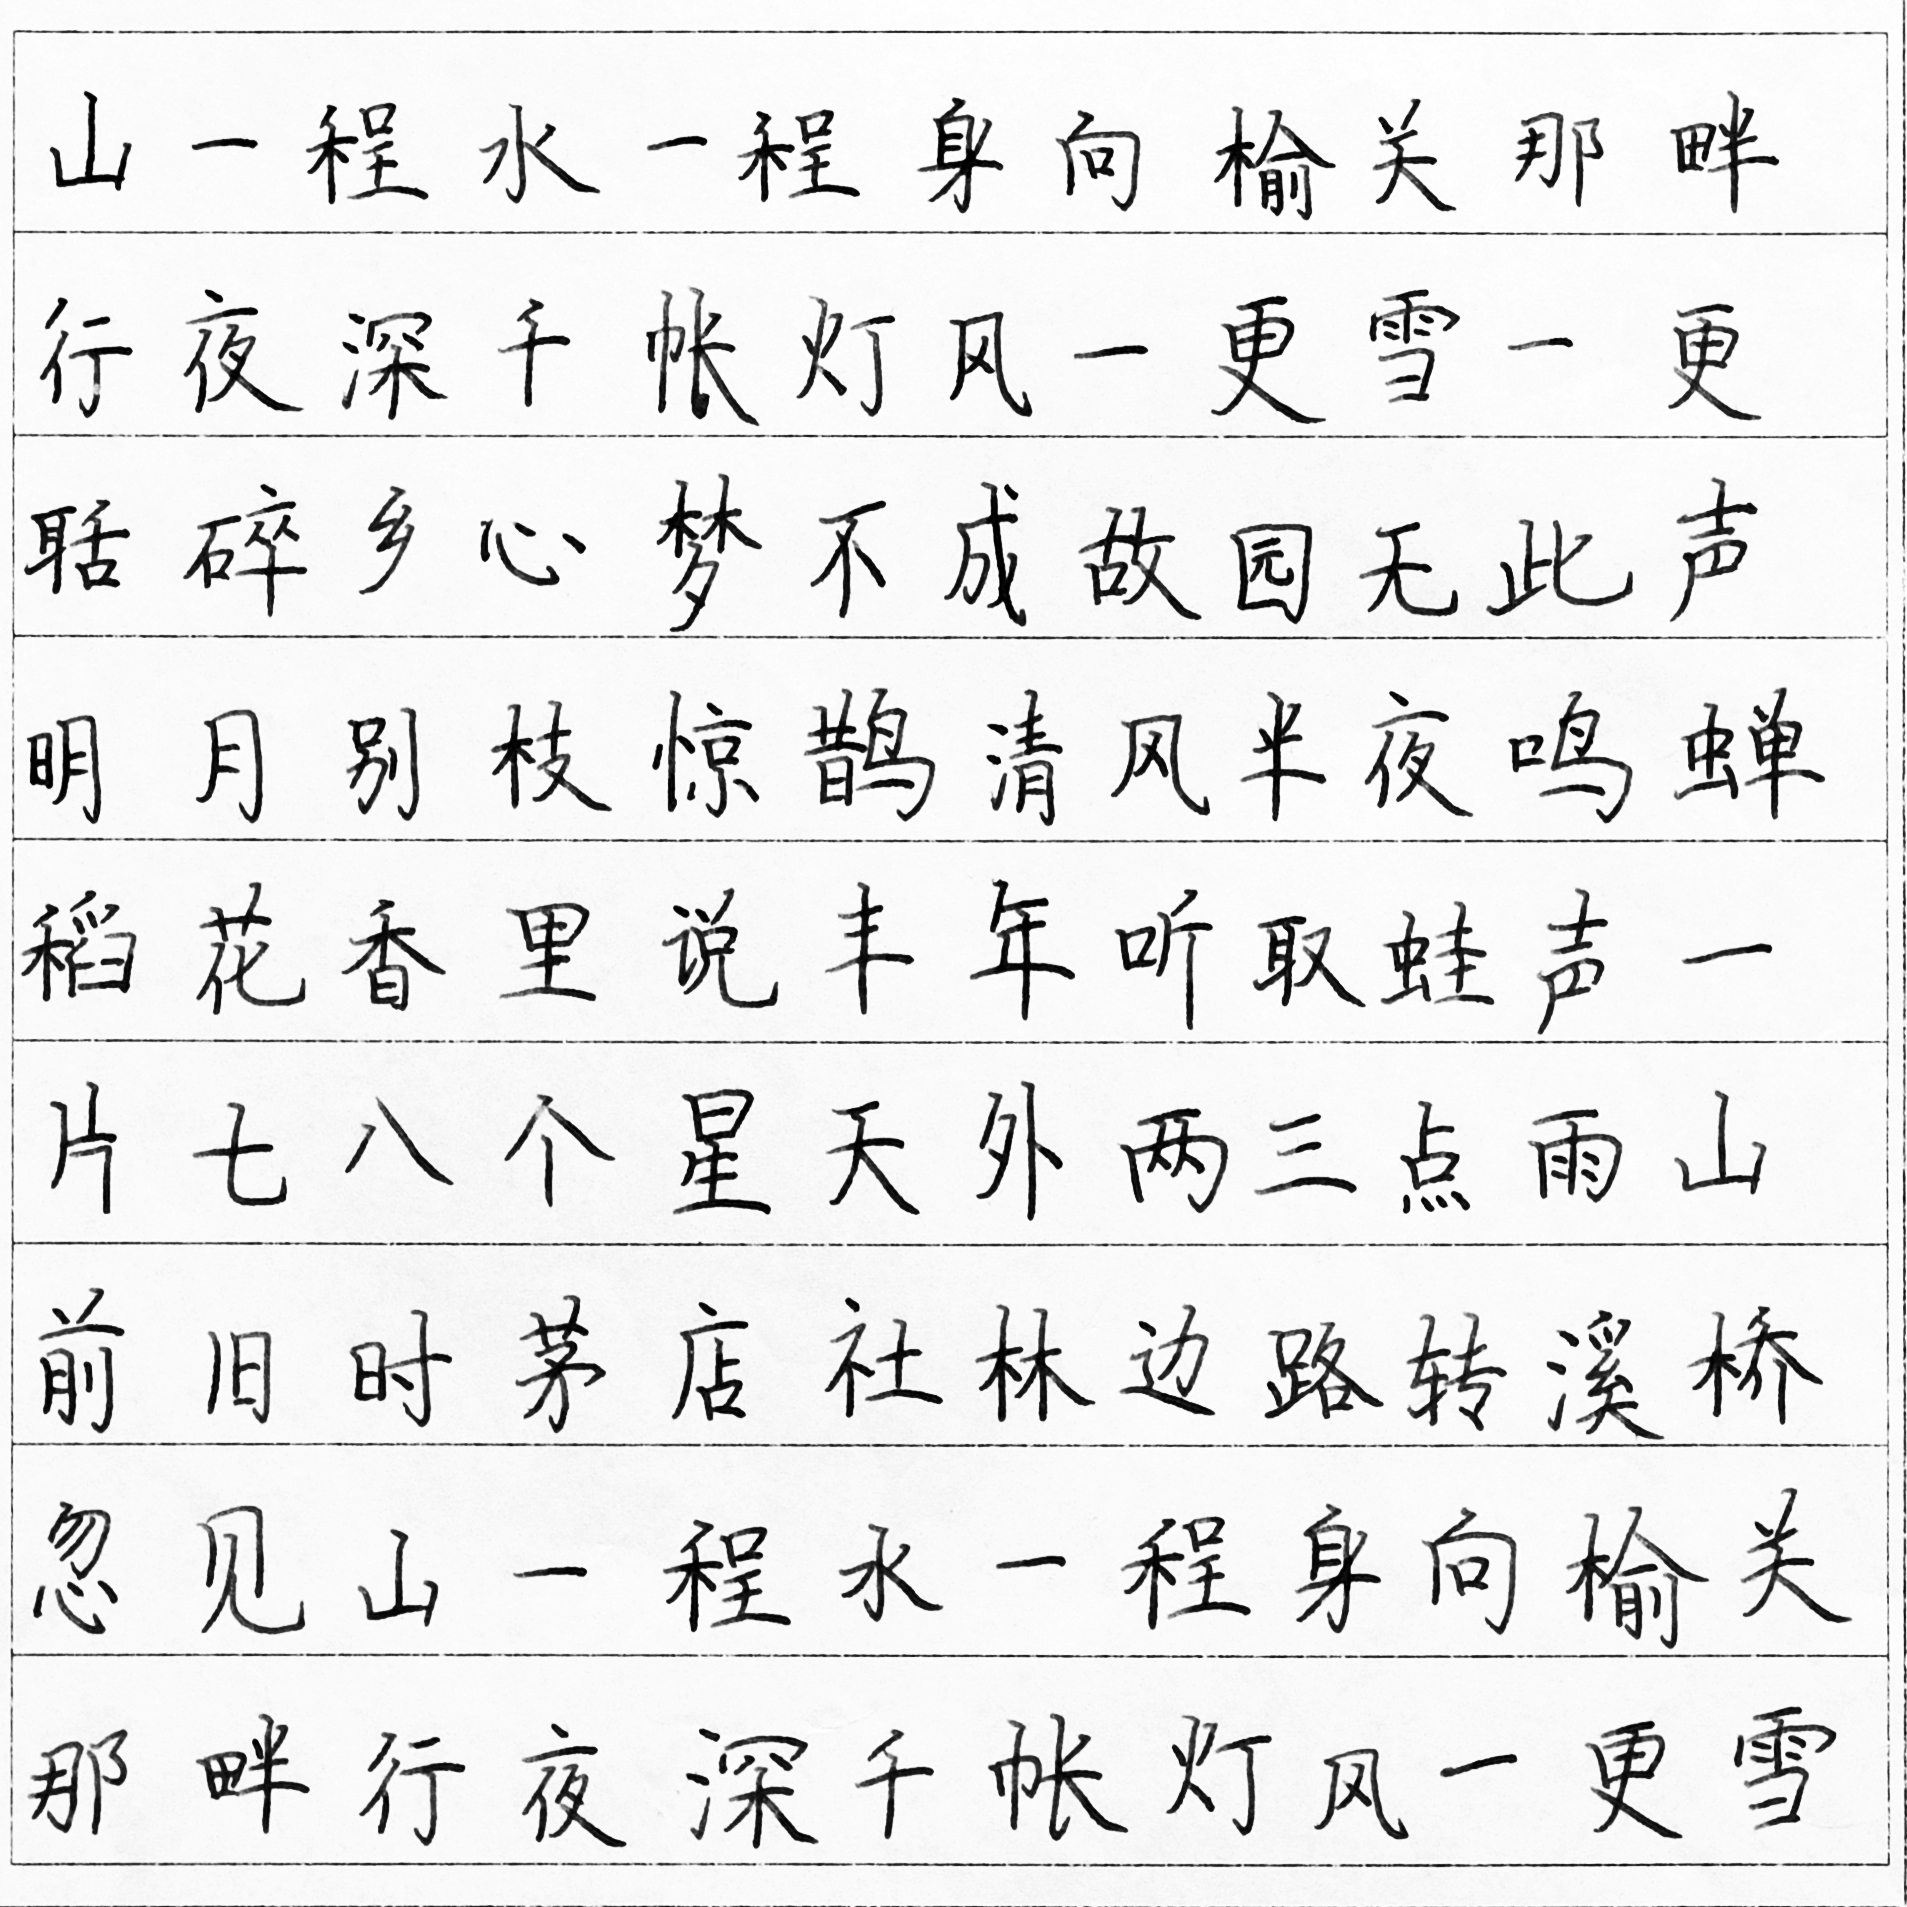 山一程水一程身向榆关那畔
行夜深千帐灯风一更雪一更
聒碎乡心梦不成故园无此声
明月别枝惊鹊清风半夜鸣蝉
稻花香里说丰年听取蛙声一
片七八个星天外两三点雨山
前旧时茅店社林边路转溪桥
忽见山一程水一程身向榆关
那畔行夜深千帐灯风一更雪